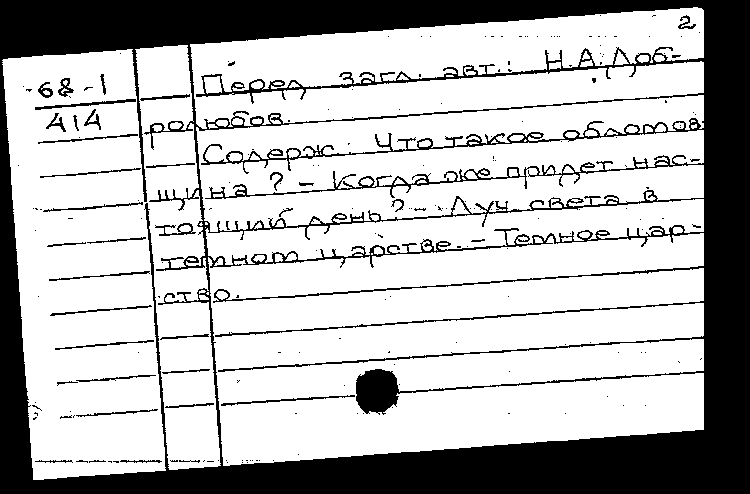 2
68-1
Перед загл. авт.: Н.А.Доб-
414
ролюбов.
Содерж.: Что такое обломов
щина? - Когда же придет нас-
тоящий день? - Луч света в
темном царстве. - Темное цар-
ство.